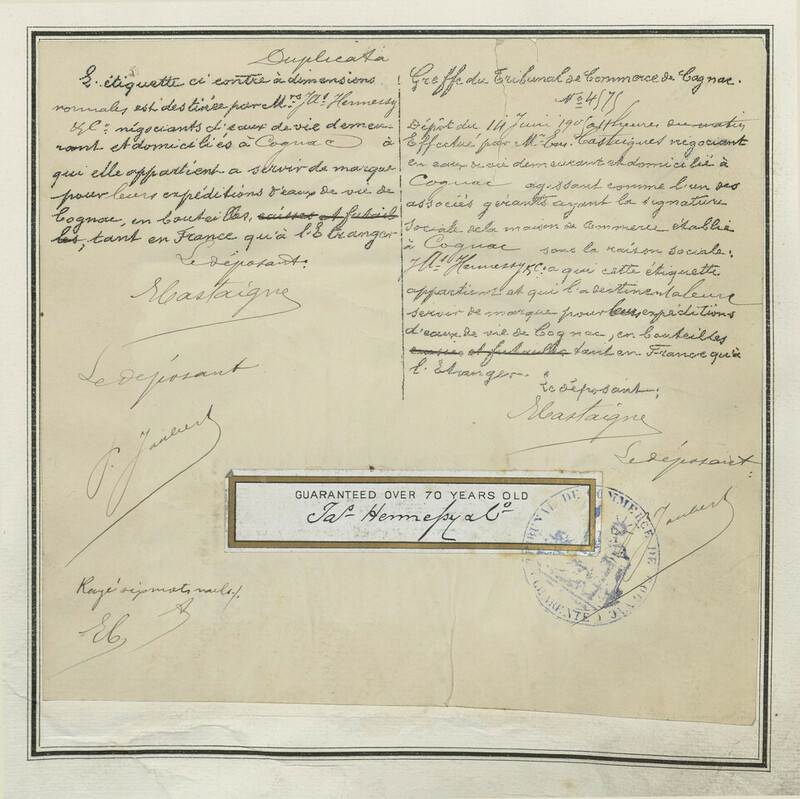 Duplicata
L'étiquette ci contre à dimensions
normales est destinée par Mrs Jas Hennessy
& Co négociants d'eaux de vie demeu
rant et domiciliés à Cognac à
qui elle appartient a servir de marque
pour leurs expéditions d'eaux de vie de
Cognac, en bouteilles, caisses et futail
les, tant en France qu'à l'Etranger
Le déposant:
ECastaigne
Le déposant
P. Jaubert
Rayé six mots nuls
EC
Greffe du Tribunal de Commerce de Cognac.
No
Dépôt du 14 Juin heures du matin
Effectué par Mr Castaigne négociant
en eaux de vie demeurant et domicilié à
Cognac agissant comme l'un des
associés gérants ayant la signature
sociale de la maison de Commerce établie
à Cognac sous la raison sociale:
Jas Hennessy & Co a qui cette étiquette
appartient et qui l'a destinent a leur
servir de marque pour leurs expéditions
d'eaux de vie de Cognac, en bouteilles
caisses et futailles tant en France qu'à
l'Etranger.
Le déposant:
ECastaigne
Le déposant
Jaubert
GUARANTEED OVER 70 YEARS OLD
Jas Hennessy & Co
TRIBUNAL DE COMMERCE DE COGNAC
CHARENTE